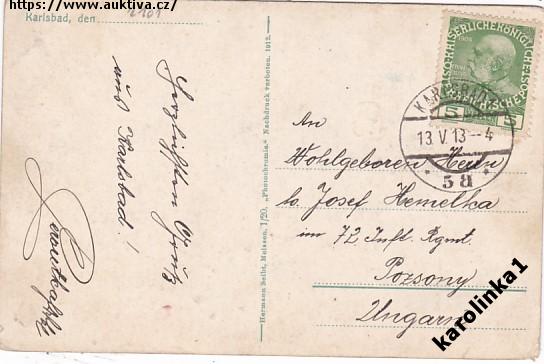 https://www.auktiva.cz/
Karlsbad, den
2101
Herzlichsten Gruß
aus Karlsbad!
Hermann Seibt, Meissen, 1/20, „Photochromie." Nachdruck verboten. 1912.
1908
5
KARLSBAD
13.V.13--4
* 5a *
An
Wohlgeboren Herrn
Josef Hemelka
im 72 Inft. Rgmt.
Pozsony
Ungarn
karolinka1